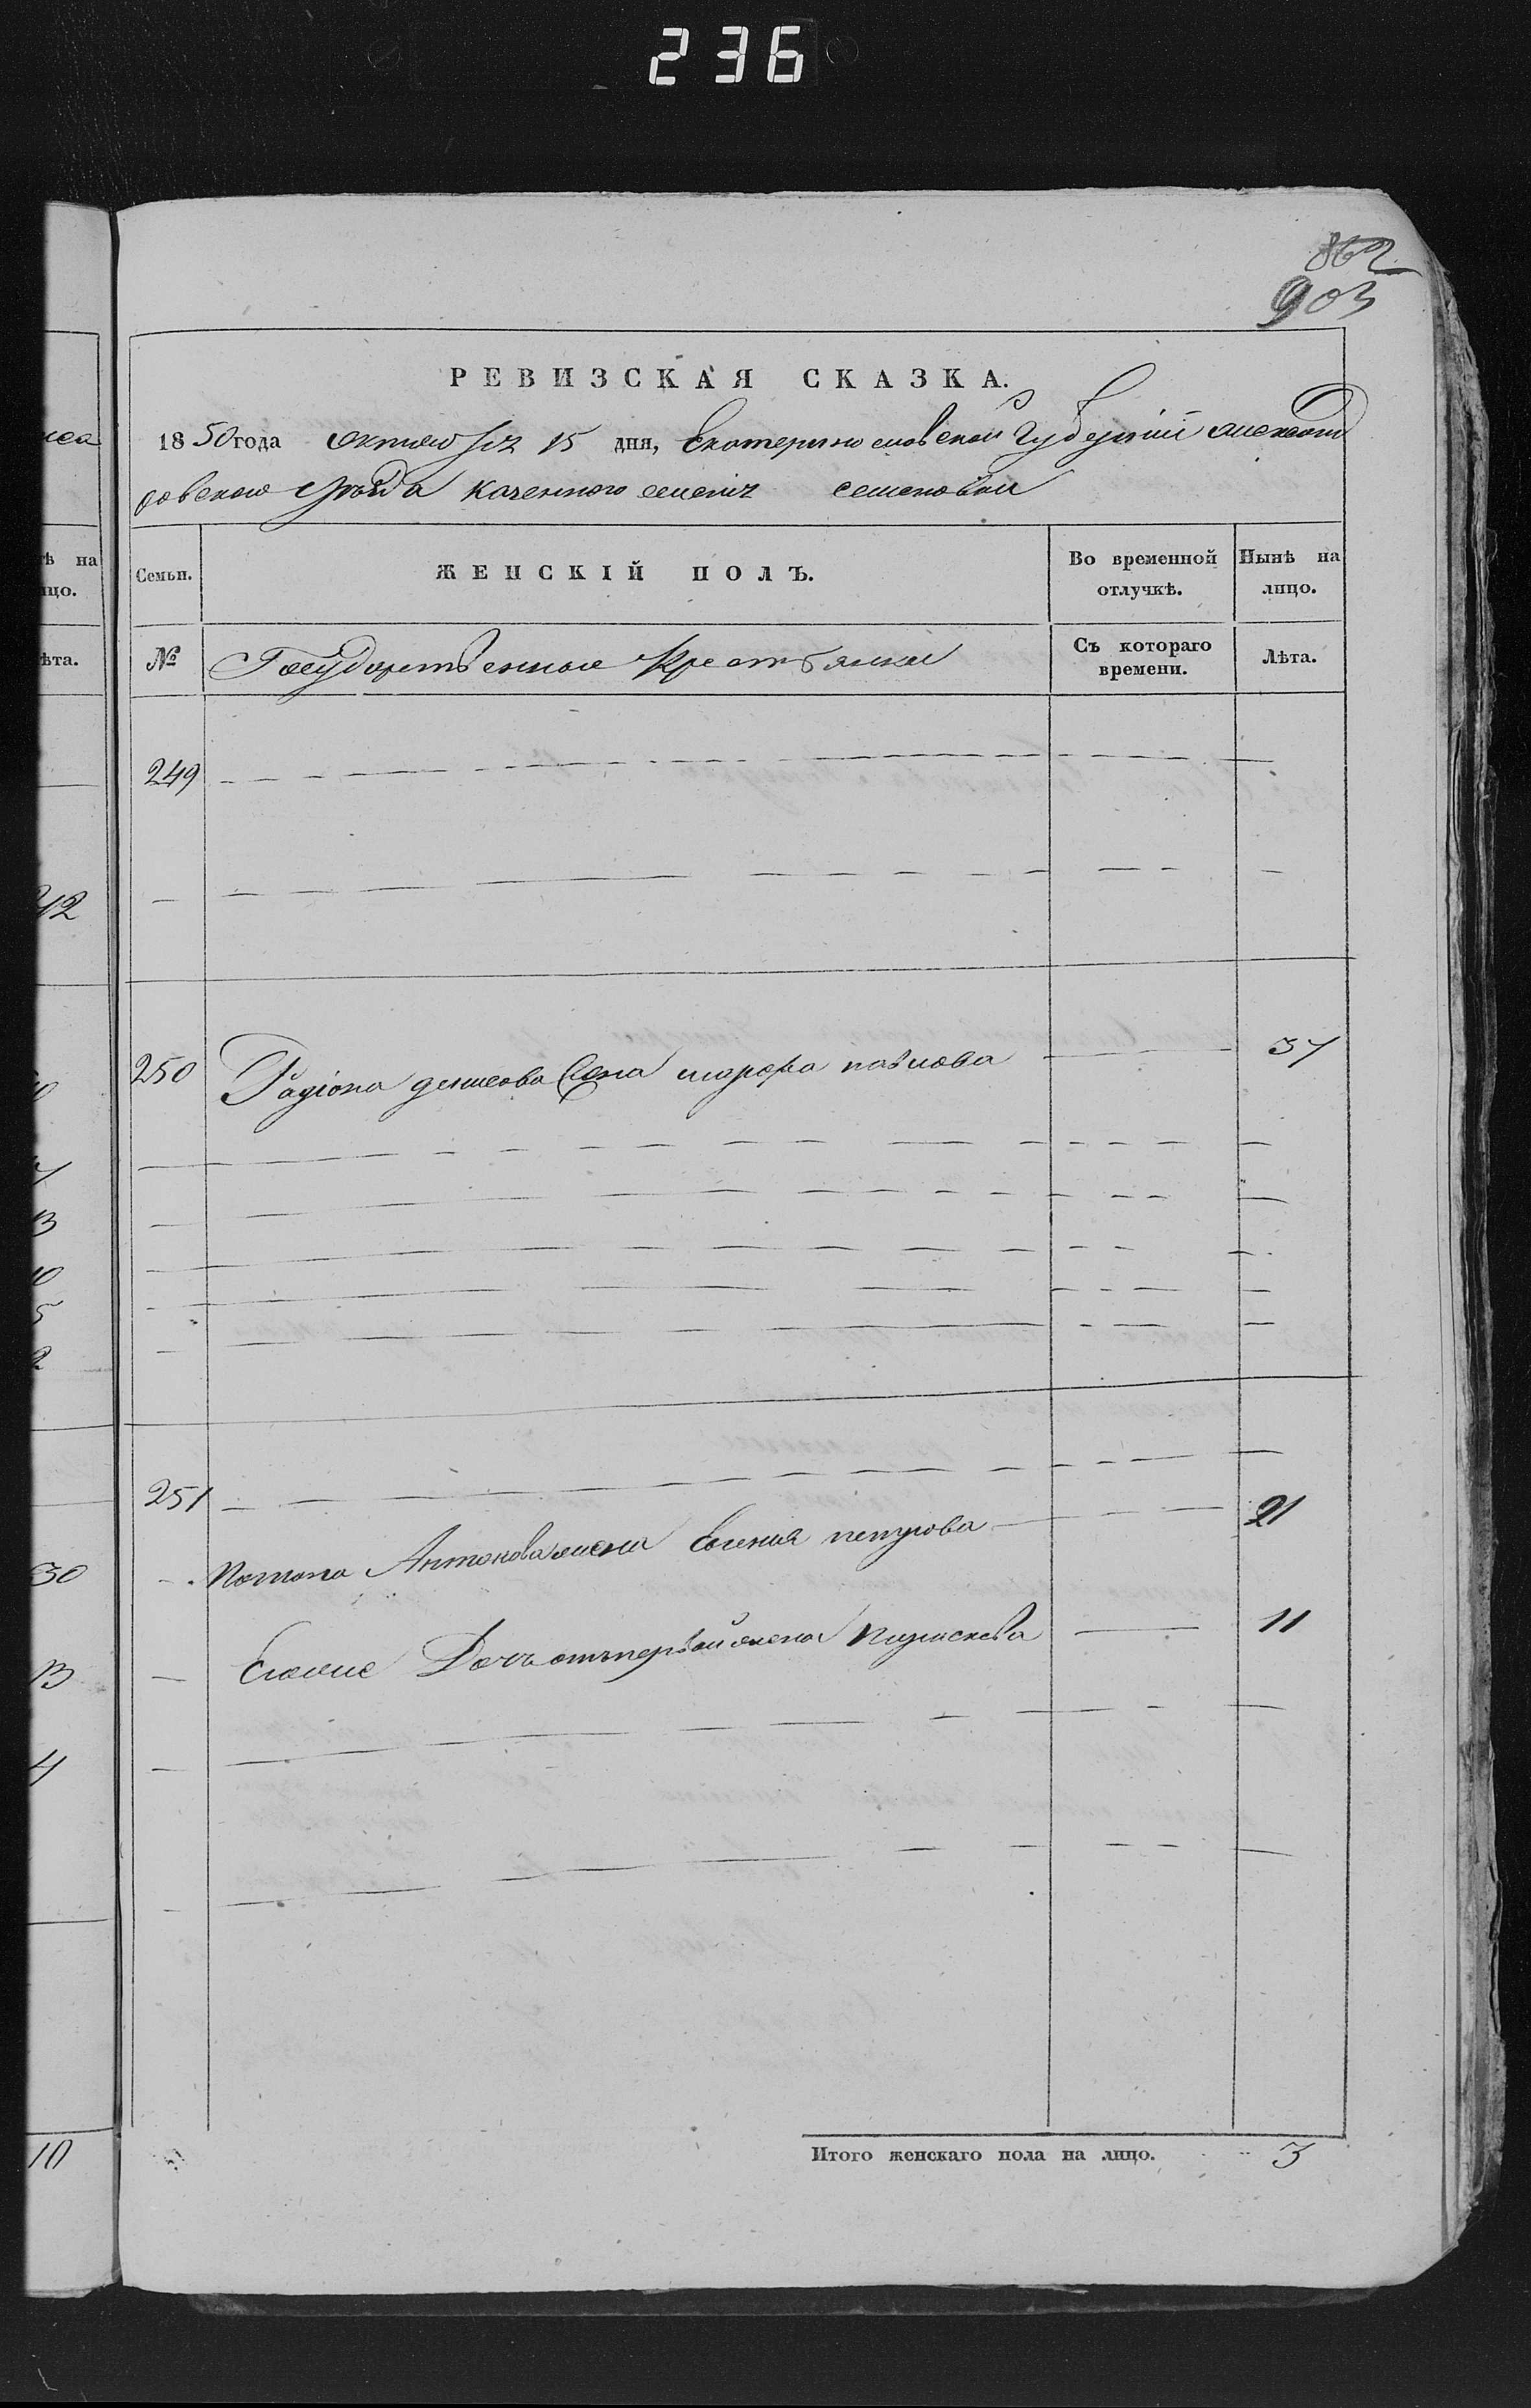 236
862
903
РЕВИЗСКАЯ СКАЗКА.
1850 года октября 15 дня, Екатеринославской Губернии Александ
ровского уезда казенного селения Семеновки
Семьи. ЖЕНСКІЙ ПОЛЪ. Во временной отлучкѣ. Нынѣ на лицо.
№ Государственные Крестьянки Съ котораго времени. Лѣта.
249
250 Радіона денисова жена марфа павлова 37
251
Потапа Антонова жена Евгения петрова 21
Его же Дочь отъ первой жена Парасковья 11
Итого женскаго пола на лицо. 3
ѣ на
цо.
ѣта.
42
13
10
5
2
30
13
4
10